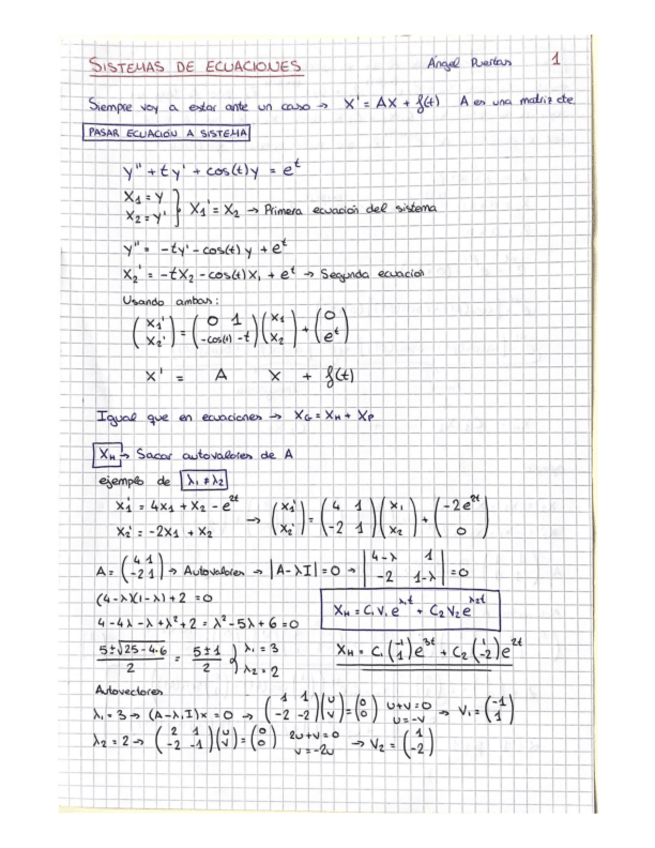 SISTEMAS DE ECUACIONES Ángel Puertas 1
Siempre voy a estar ante un caso → X' = AX + f(t) A es una matriz cte
PASAR ECUACIÓN A SISTEMA
y'' + ty' + cos(t)y = e^t
X₁ = y
X₂ = y' } X₁' = X₂ → Primera ecuación del sistema
y'' = -ty' - cos(t)y + e^t
X₂' = -tX₂ - cos(t)X₁ + e^t → Segunda ecuación
Usando ambas:
(X₁' ; X₂') = (0 1 ; -cos(t) -t)(X₁ ; X₂) + (0 ; e^t)
X' = A X + f(t)
Igual que en ecuaciones → X_G = X_H + X_P
X_H → Sacar autovalores de A
ejemplo de λ₁ ≠ λ₂
X₁' = 4X₁ + X₂ - e^2t
X₂' = -2X₁ + X₂ → (X₁' ; X₂') = (4 1 ; -2 1)(X₁ ; X₂) + (-2e^2t ; 0)
A = (4 1 ; -2 1) → Autovalores → |A-λI| = 0 → |4-λ 1 ; -2 1-λ| = 0
(4-λ)(1-λ) + 2 = 0
X_H = C₁V₁e^λt + C₂V₂e^λ₂t
4 - 4λ - λ + λ² + 2 = λ² - 5λ + 6 = 0
(5±√25-4·6)/2 = (5±1)/2 } λ₁ = 3 λ₂ = 2
X_H = C₁(-1 ; 1)e^3t + C₂(1 ; -2)e^2t
Autovectores
λ₁ = 3 → (A-λ₁I)x = 0 → (1 1 ; -2 -2)(u ; v) = (0 ; 0) u+v=0 u=-v → V₁ = (-1 ; 1)
λ₂ = 2 → (2 1 ; -2 -1)(u ; v) = (0 ; 0) 2u+v=0 v=-2u → V₂ = (1 ; -2)